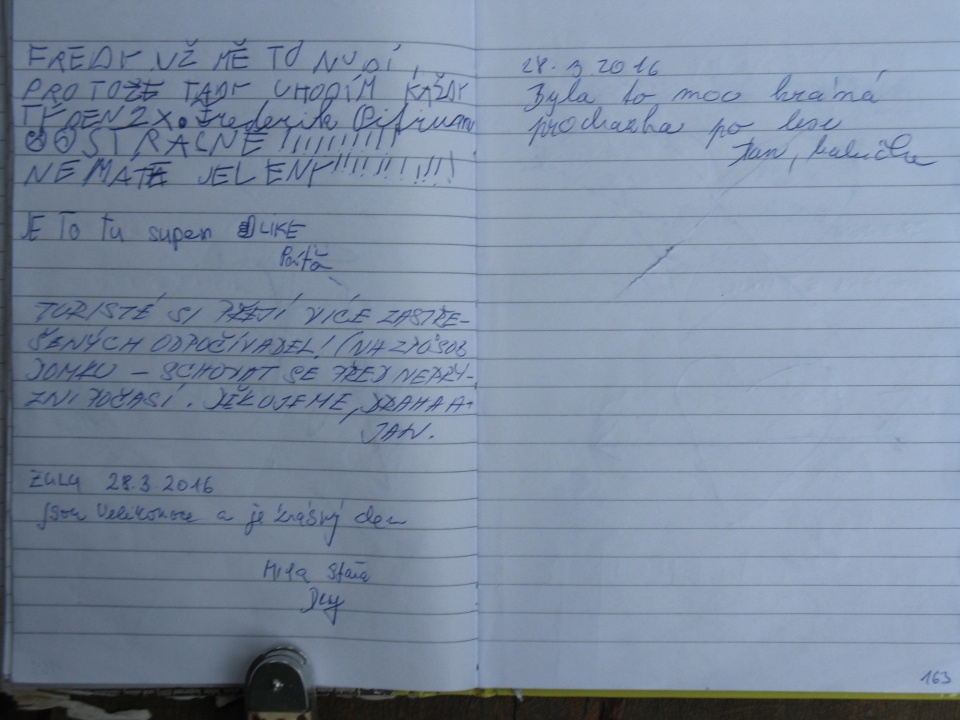 FREDY UŽ MĚ TO NUDÍ,
PROTOŽE TADY CHODÍM KAŽDY
TÝDEN 2X. Frederik
STRAČNĚ !!!!!!!!!
NEMÁTE JELENY!!!!!!!!!!
JE To tu super LIKE
TURISTÉ SI PŘEJÍ VÍCE ZASTŘE-
ŠENÝCH ODPOČÍVADEL! (NA ZPŮSOB
DOMKU – SCHOVAT SE PŘED NEPŘÍ-
ZNÍ POČASÍ. DĚKUJEME, DRAHA A
JAN.
28.3.2016
jsou Velikonoce a je krásný den
Míla
28.3 2016
Byla to moc krásná
procházka po lese
Jan,
163